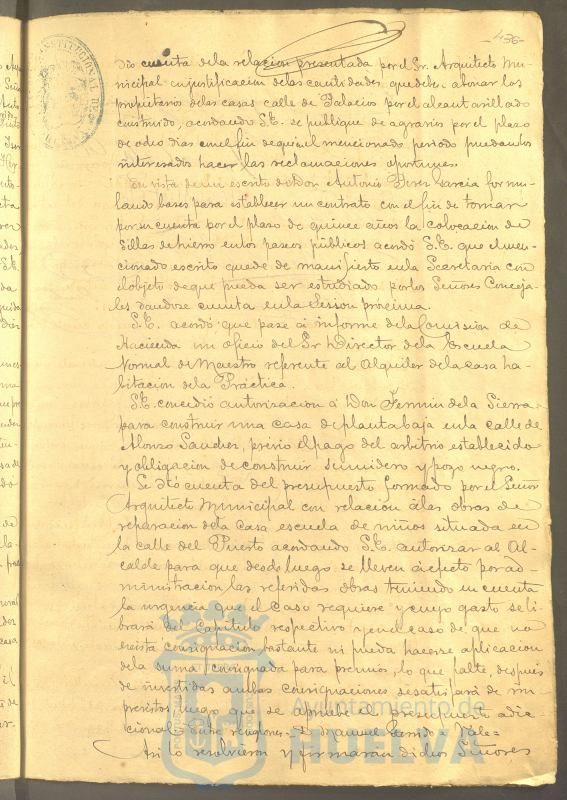 436
Dio cuenta de la relacion presentada por el Sr. Arquitecto Mu-
nicipal en justificacion de las cantidades que deben abonar los
propietarios de las casas calle de Palacios por el alcantarillado
construido, acordando S.E. se publique de agravios por el plazo
de ocho dias con el fin de que en el mencionado periodo puedan los
interesados hacer las reclamaciones oportunas.
En vista de un escrito de Don Antonio Garcia formu-
lando bases para establecer un contrato con el fin de tomar
por su cuenta por el plazo de quince años la colocacion de
sillas de hierro en los paseos públicos acordó S.E. que el men-
cionado escrito quede de manifiesto en la Secretaria con
el objeto de que pueda ser estudiado por los Señores Conceja-
les, dandose cuenta en la sesion proxima.
S.E. acordó que pase á informe de la Comision de
Hacienda un oficio del Sr Director de la Escuela
Normal de Maestro referente al Alquiler de la casa ha-
bitacion de la Práctica.
S.E. concedió autorizacion á Don Fermin de la Sierra
para construir una casa de planta baja en la calle de
Alonso Sanchez, prévio el pago del arbitrio establecido
y obligacion de construir sumidero y pozo negro.
Se dió cuenta del presupuesto formado por el Señor
Arquitecto Municipal con relacion á las obras de
reparacion de la Casa escuela de niños situada en
la calle del Puerto acordando S.E. autorizar al Al-
calde para que desde luego se lleven á efecto por ad-
ministracion las referidas obras teniendo en cuenta
la urgencia que el caso requiere y cuyo gasto se li-
brará del Capitulo respectivo y en el caso de que no
exista consignacion bastante ni pueda hacerse aplicacion
de la suma consignada para premios, lo que falte, despues
de invertidas ambas consignaciones se satisfará de im-
previstos, luego que se apruebe el presupuesto adi-
cional. Entre renglones = D. Manuel Garrido = Vale=
Asi lo resolvieron y firmaran dichos Señores
Ayuntamiento de
HUELVA